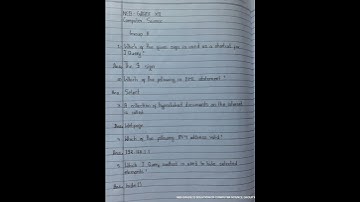 NEB - GRADE XII
Computer Science
Group A
1. Which of the given sign is used as a shortcut for
J Query?
Ans: The $ sign
2. Which of the following is DML statement?
Ans: Select
3. A collection of hyperlinked documents on the internet
is called
Ans: Webpage
4. Which of the following IPv4 address valid?
Ans:
5. Which J Query method is used to hide selected
elements?
Ans: hide()